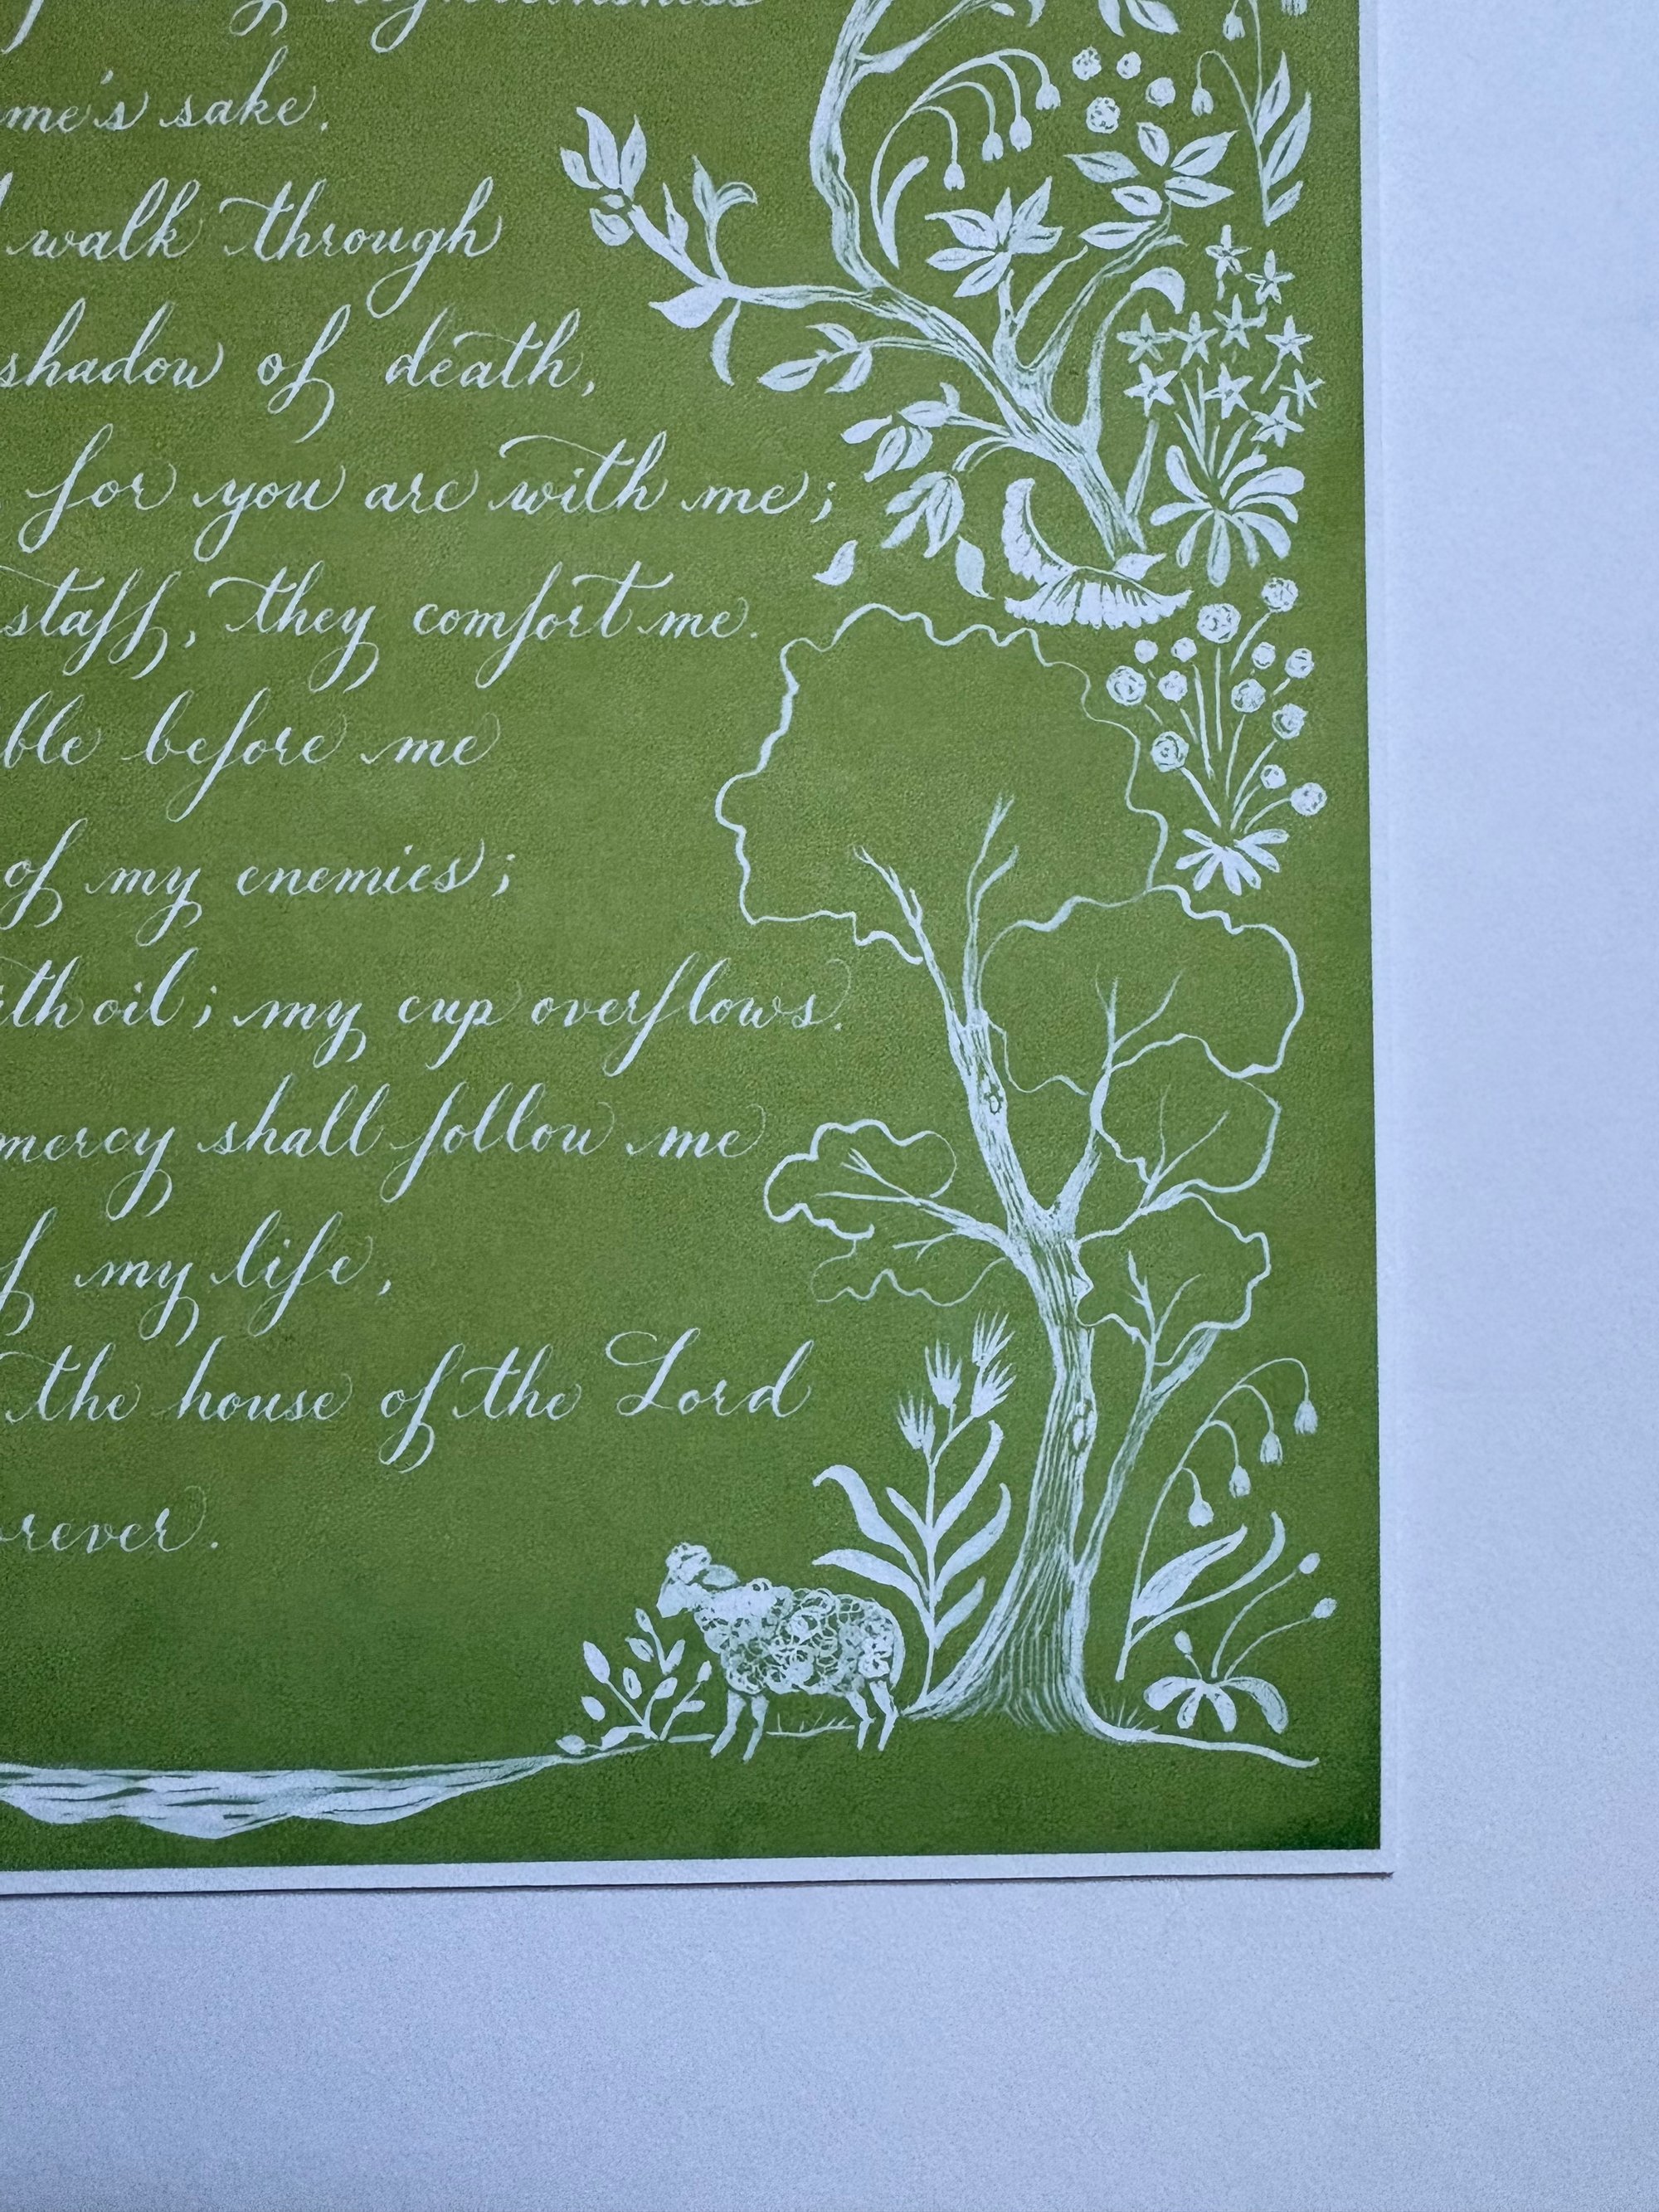 me's sake.
walk through
shadow of death,
for you are with me;
staff, they comfort me.
ble before me
of my enemies;
ith oil; my cup overflows.
mercy shall follow me
f my life,
the house of the Lord
orever.